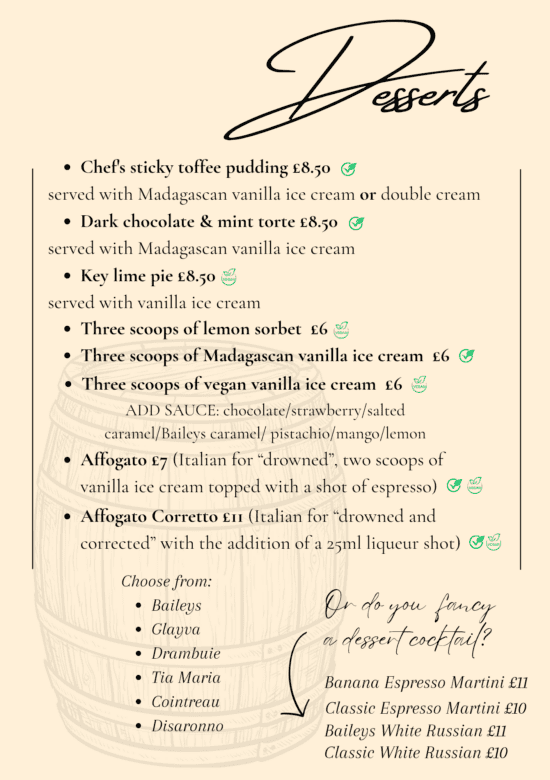 Desserts
• Chef's sticky toffee pudding £8.50
served with Madagascan vanilla ice cream or double cream
• Dark chocolate & mint torte £8.50
served with Madagascan vanilla ice cream
• Key lime pie £8.50
served with vanilla ice cream
• Three scoops of lemon sorbet £6
• Three scoops of Madagascan vanilla ice cream £6
• Three scoops of vegan vanilla ice cream £6
ADD SAUCE: chocolate/strawberry/salted
caramel/Baileys caramel/ pistachio/mango/lemon
• Affogato £7 (Italian for “drowned”, two scoops of
vanilla ice cream topped with a shot of espresso)
• Affogato Corretto £11 (Italian for “drowned and
corrected” with the addition of a 25ml liqueur shot)
Choose from:
• Baileys
• Glayva
• Drambuie
• Tia Maria
• Cointreau
• Disaronno
Or do you fancy
a dessert cocktail?
Banana Espresso Martini £11
Classic Espresso Martini £10
Baileys White Russian £11
Classic White Russian £10